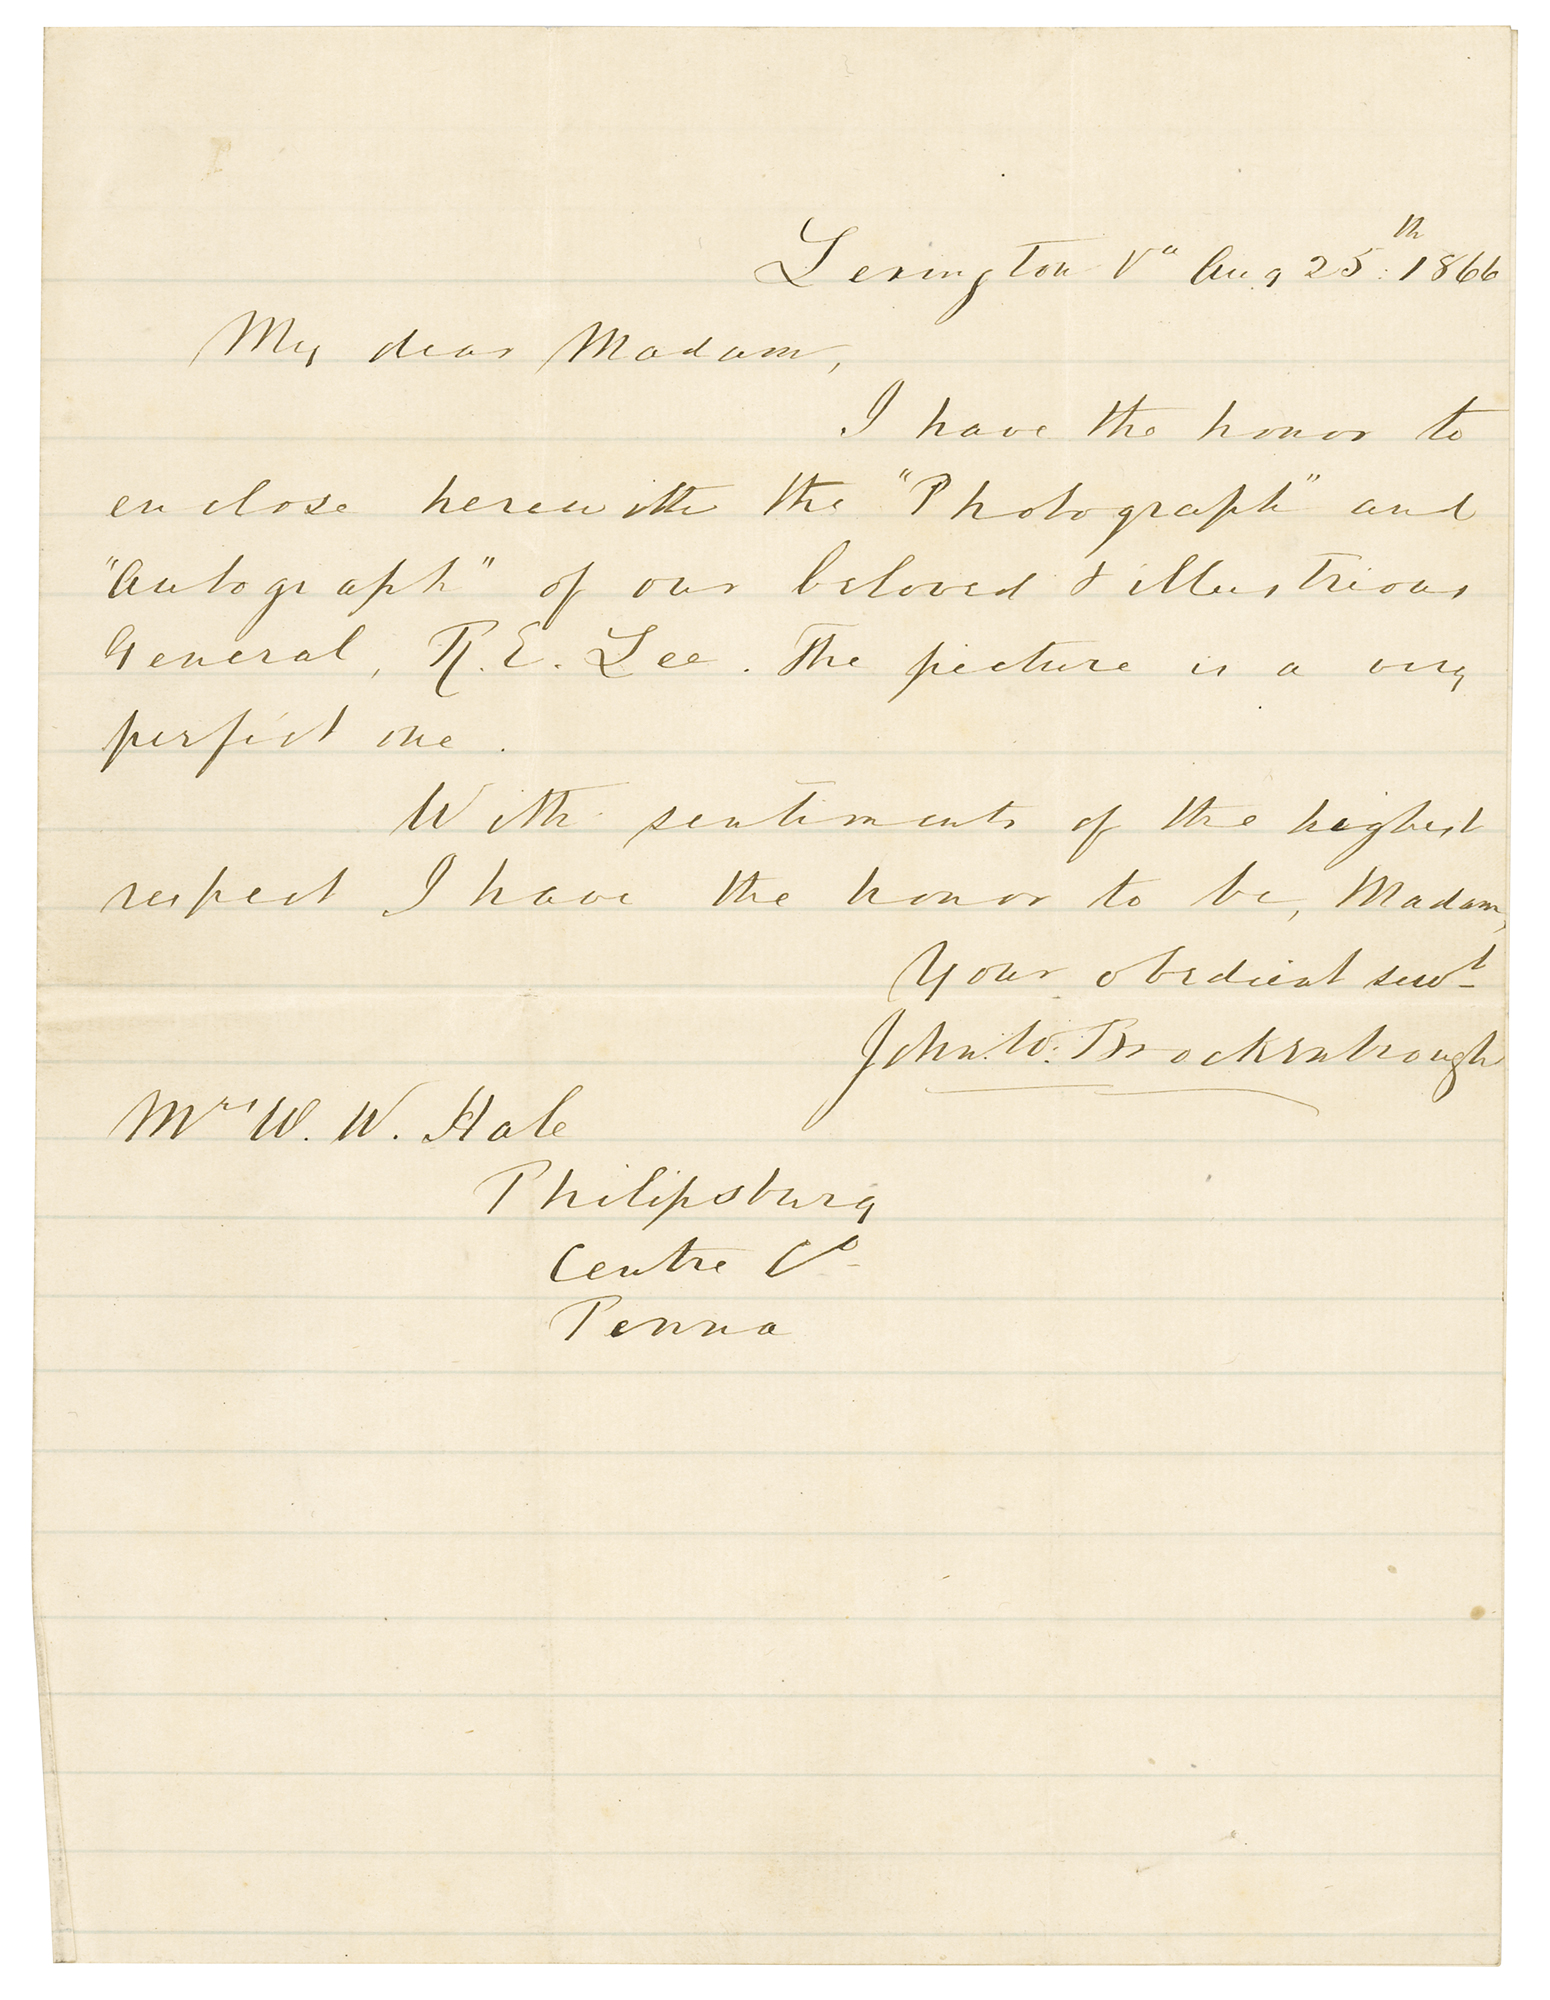 Lexington Va Aug 25th 1866
My dear Madam,
I have the honor to
enclose herewith the "Photograph" and
"Autograph" of our beloved & illustrious
General, R. E. Lee. The picture is a very
perfect one.
With sentiments of the highest
respect I have the honor to be, Madam,
Your obedient servt
John. W. Brockenbrough
Mrs W. W. Hale
Philipsburg
Centre Co
Penna